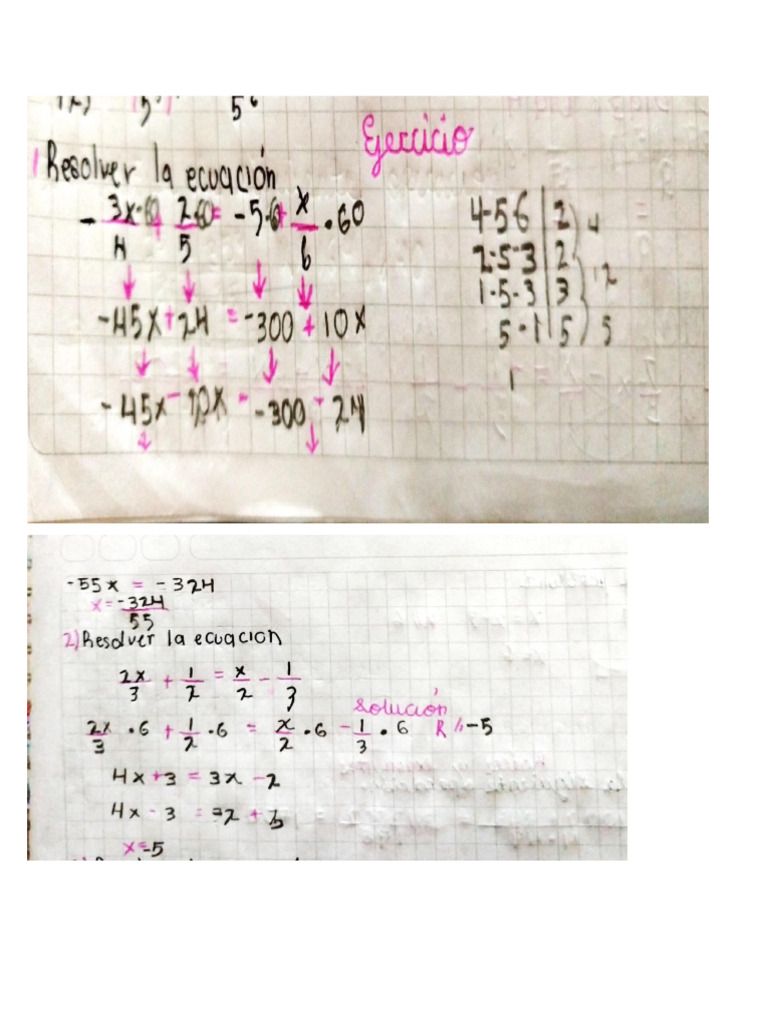 Ejercicio
1 Resolver la ecuación
- 3x·60/4 + 2·60/5 = -5·6 + x/6 · 60
-45x + 24 = -300 + 10x
-45x - 10x = -300 - 24
4-5-6 | 2
2-5-3 | 2 4
1-5-3 | 3 12
5-1 | 5 5
1
-55x = -324
x = -324/55
2) Resolver la ecuacion
2x/3 + 1/2 = x/2 - 1/3
Solución
2x/3 · 6 + 1/2 · 6 = x/2 · 6 - 1/3 · 6 R// -5
4x + 3 = 3x - 2
4x - 3 = -2 +
x = -5